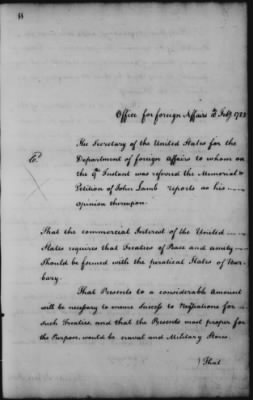 Office for foreign Affairs
The Secretary of the United States for the
Department of foreign Affairs to whom on
the 9th Instant was referred the Memorial &
Petition of John Lamb reports as his
opinion thereupon.
That the commercial Interest of the United
States requires that Treaties of Peace and amity
should be formed with the peratical States of Bar-
bary.
That Presents to a considerable Amount
will be necessary to ensure Success to Negotiations for
such Treaties, and that the Presents most proper for
the Purpose, would be naval and Military Stores.
That